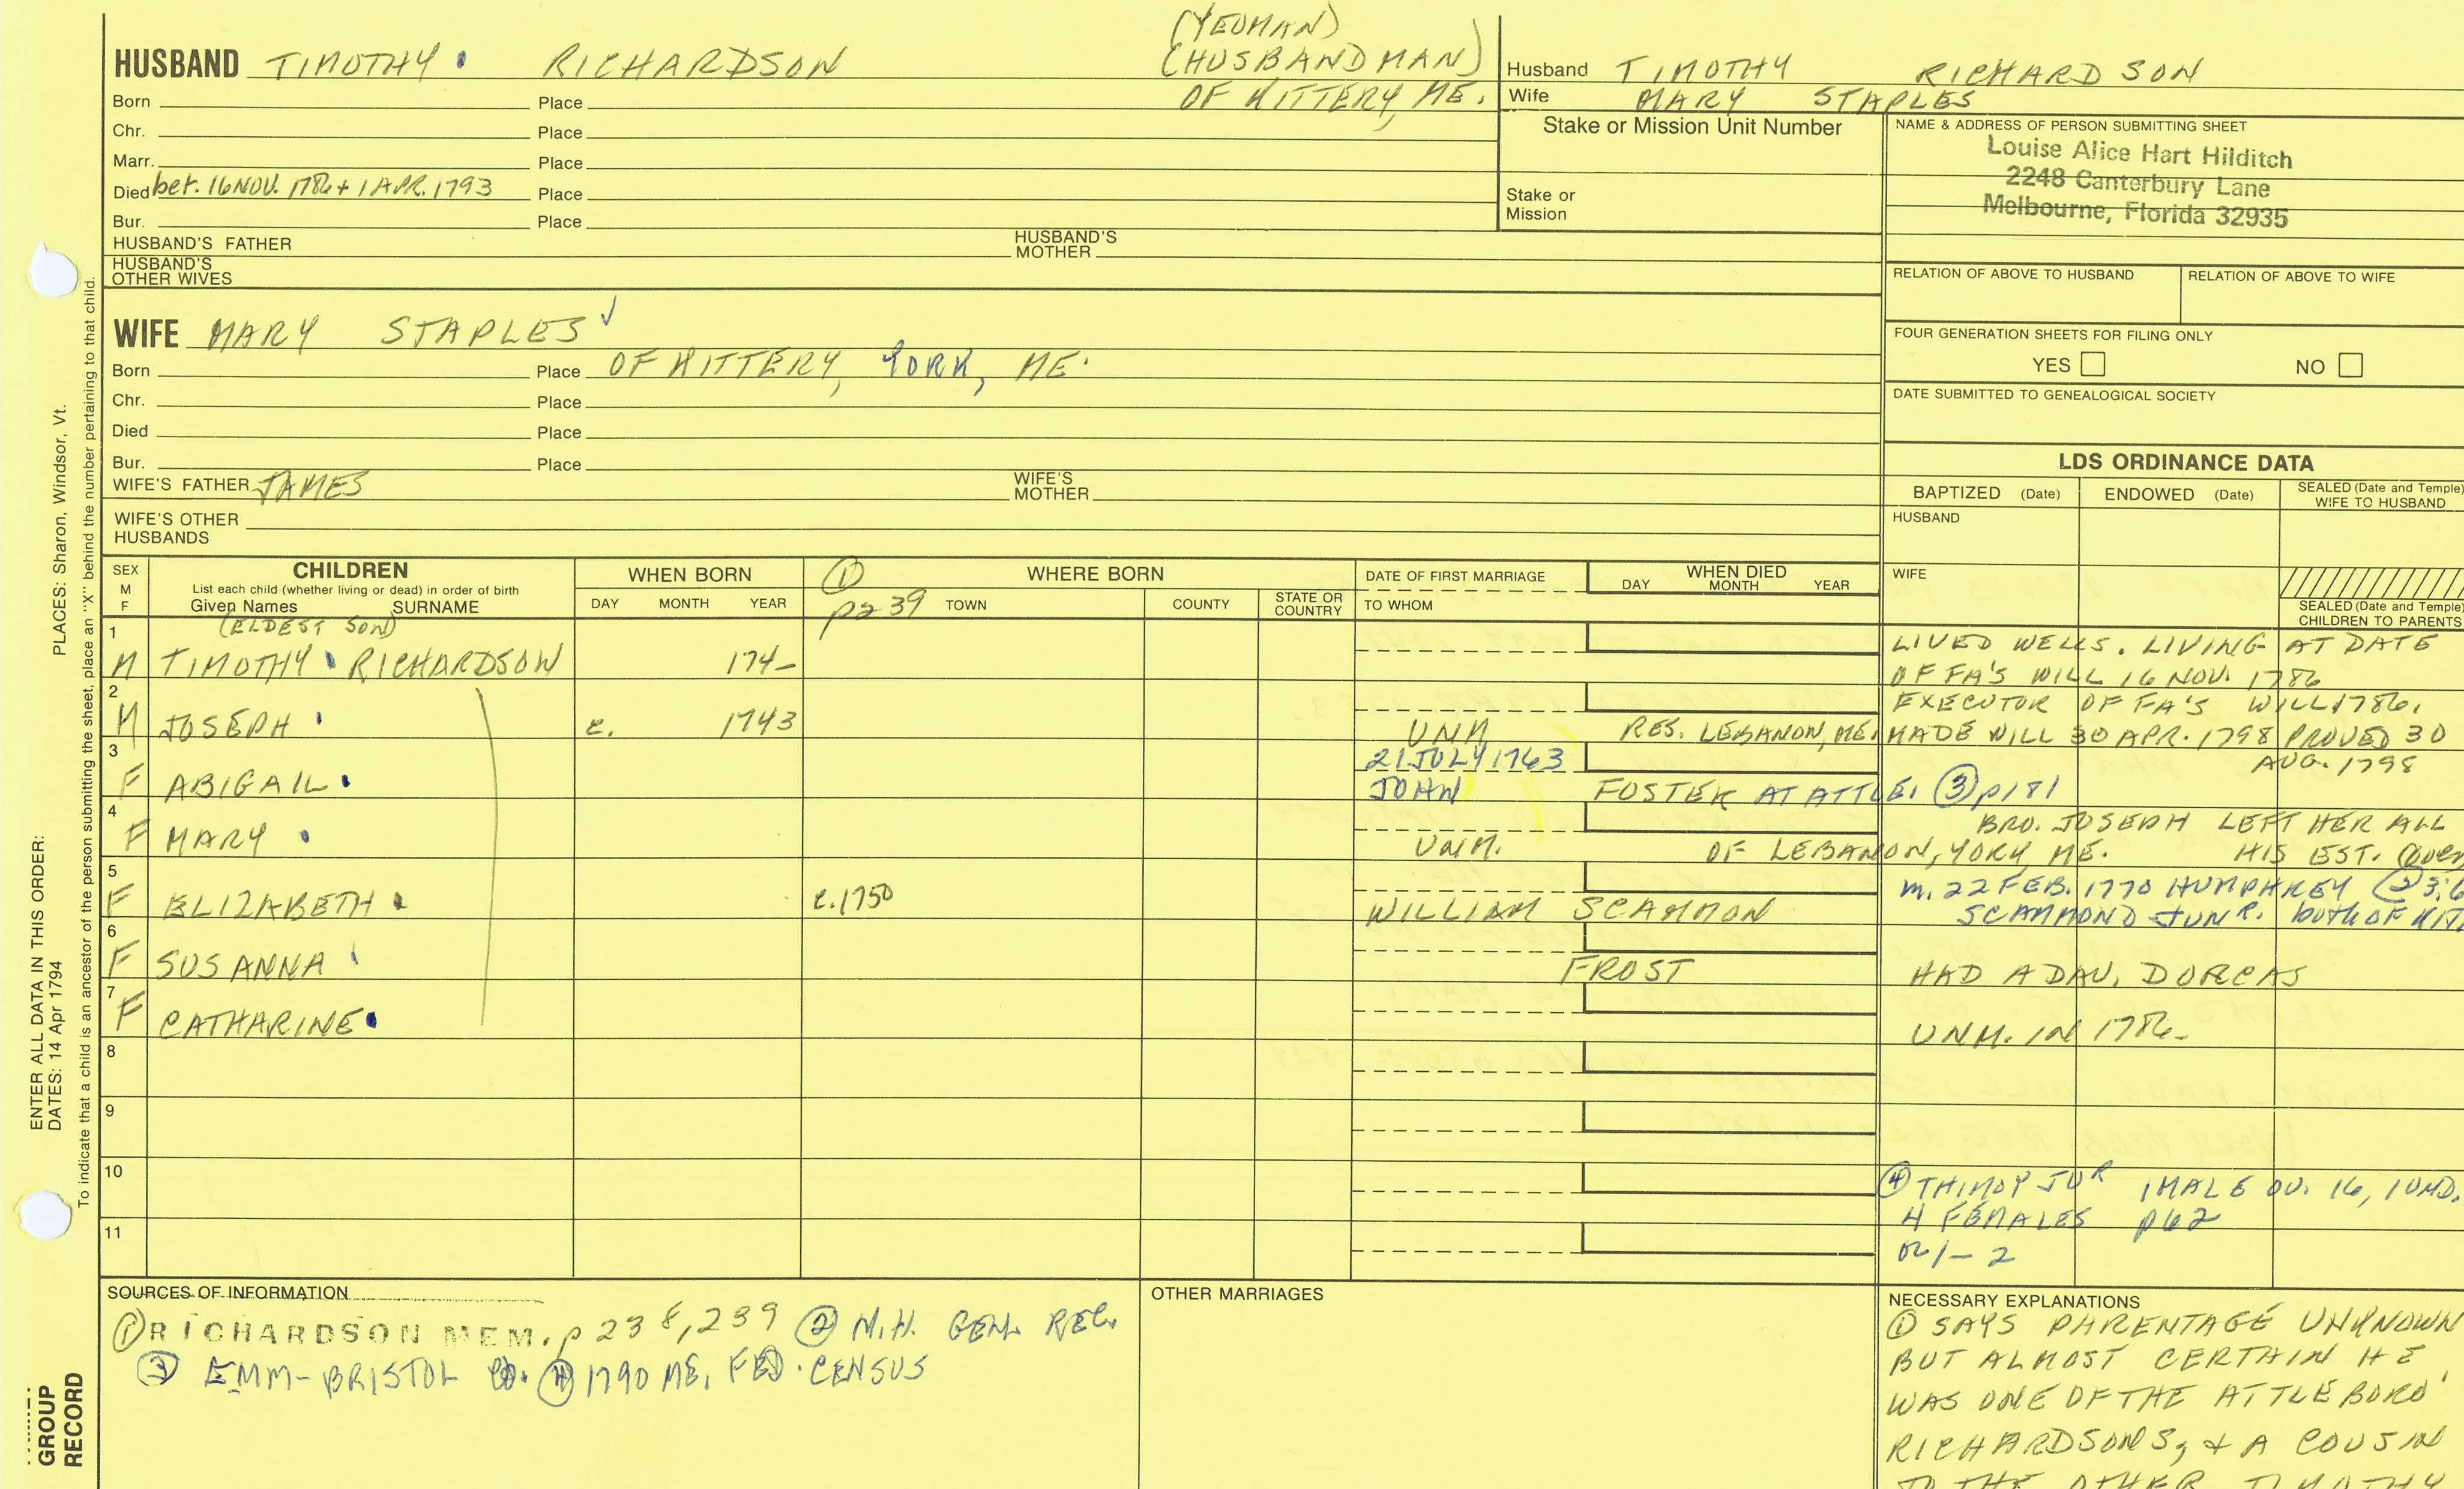 (YEOMAN)
HUSBAND TIMOTHY RICHARDSON (HUSBANDMAN)
Born Place OF KITTERY, ME.
Chr. Place
Marr. Place
Died bet. 16 NOV. 1786 + 1 APR. 1793 Place
Bur. Place
HUSBAND'S FATHER HUSBAND'S MOTHER
HUSBAND'S OTHER WIVES
Husband TIMOTHY RICHARDSON
Wife MARY STAPLES
Stake or Mission Unit Number
Stake or Mission
NAME & ADDRESS OF PERSON SUBMITTING SHEET
Louise Alice Hart Hilditch
2248 Canterbury Lane
Melbourne, Florida 32935
RELATION OF ABOVE TO HUSBAND RELATION OF ABOVE TO WIFE
FOUR GENERATION SHEETS FOR FILING ONLY
YES NO
DATE SUBMITTED TO GENEALOGICAL SOCIETY
WIFE MARY STAPLES ✓
Born Place OF KITTERY, YORK, ME.
Chr. Place
Died Place
Bur. Place
WIFE'S FATHER JAMES WIFE'S MOTHER
WIFE'S OTHER HUSBANDS
LDS ORDINANCE DATA
BAPTIZED (Date) ENDOWED (Date) SEALED (Date and Temple) WIFE TO HUSBAND
HUSBAND
WIFE
SEALED (Date and Temple) CHILDREN TO PARENTS
SEX M F
CHILDREN
List each child (whether living or dead) in order of birth
Given Names SURNAME
WHEN BORN
DAY MONTH YEAR
① p239
WHERE BORN
TOWN COUNTY STATE OR COUNTRY
DATE OF FIRST MARRIAGE
TO WHOM
WHEN DIED
DAY MONTH YEAR
(ELDEST SON)
1 M TIMOTHY RICHARDSON 174- LIVED WELLS. LIVING AT DATE
OF FA'S WILL 16 NOV. 1786
2 M JOSEPH c. 1743 UNM RES. LEBANON, ME. EXECUTOR OF FA'S WILL 1786.
MADE WILL 30 APR. 1798 PROVED 30
AUG. 1798
3 F ABIGAIL 21 JULY 1763
JOHN FOSTER AT ATTLE. ③ p181
4 F MARY UNM. OF LEBANON, YORK, ME. BRO. JOSEPH LEFT HER ALL
HIS EST. (over
5 F ELIZABETH c.1750 WILLIAM SCAMMON m. 22 FEB. 1770 HUMPHREY ② 3:6
SCAMMOND JUNR. both OF KIT
6 F SUSANNA FROST HAD A DAU. DORCAS
7 F CATHARINE UNM. IN 1786
8
9
10
④ THIMOY JUR 1 MALE OV. 16, 1 UND.
4 FEMALES p62
11
1-2
SOURCES OF INFORMATION
① RICHARDSON MEM. p 238, 239 ② N.H. GEN. REC.
③ EMM-BRISTOL CO. ④ 1790 ME. FED. CENSUS
OTHER MARRIAGES
NECESSARY EXPLANATIONS
① SAYS PARENTAGE UNKNOWN
BUT ALMOST CERTAIN HE
WAS ONE OF THE ATTLEBORO'
RICHARDSONS, + A COUSIN
TO THE OTHER TIMOTHY
ENTER ALL DATA IN THIS ORDER:
DATES: 14 Apr 1794 PLACES: Sharon, Windsor, Vt.
To indicate that a child is an ancestor of the person submitting the sheet, place an "X" behind the number pertaining to that child.
GROUP
RECORD